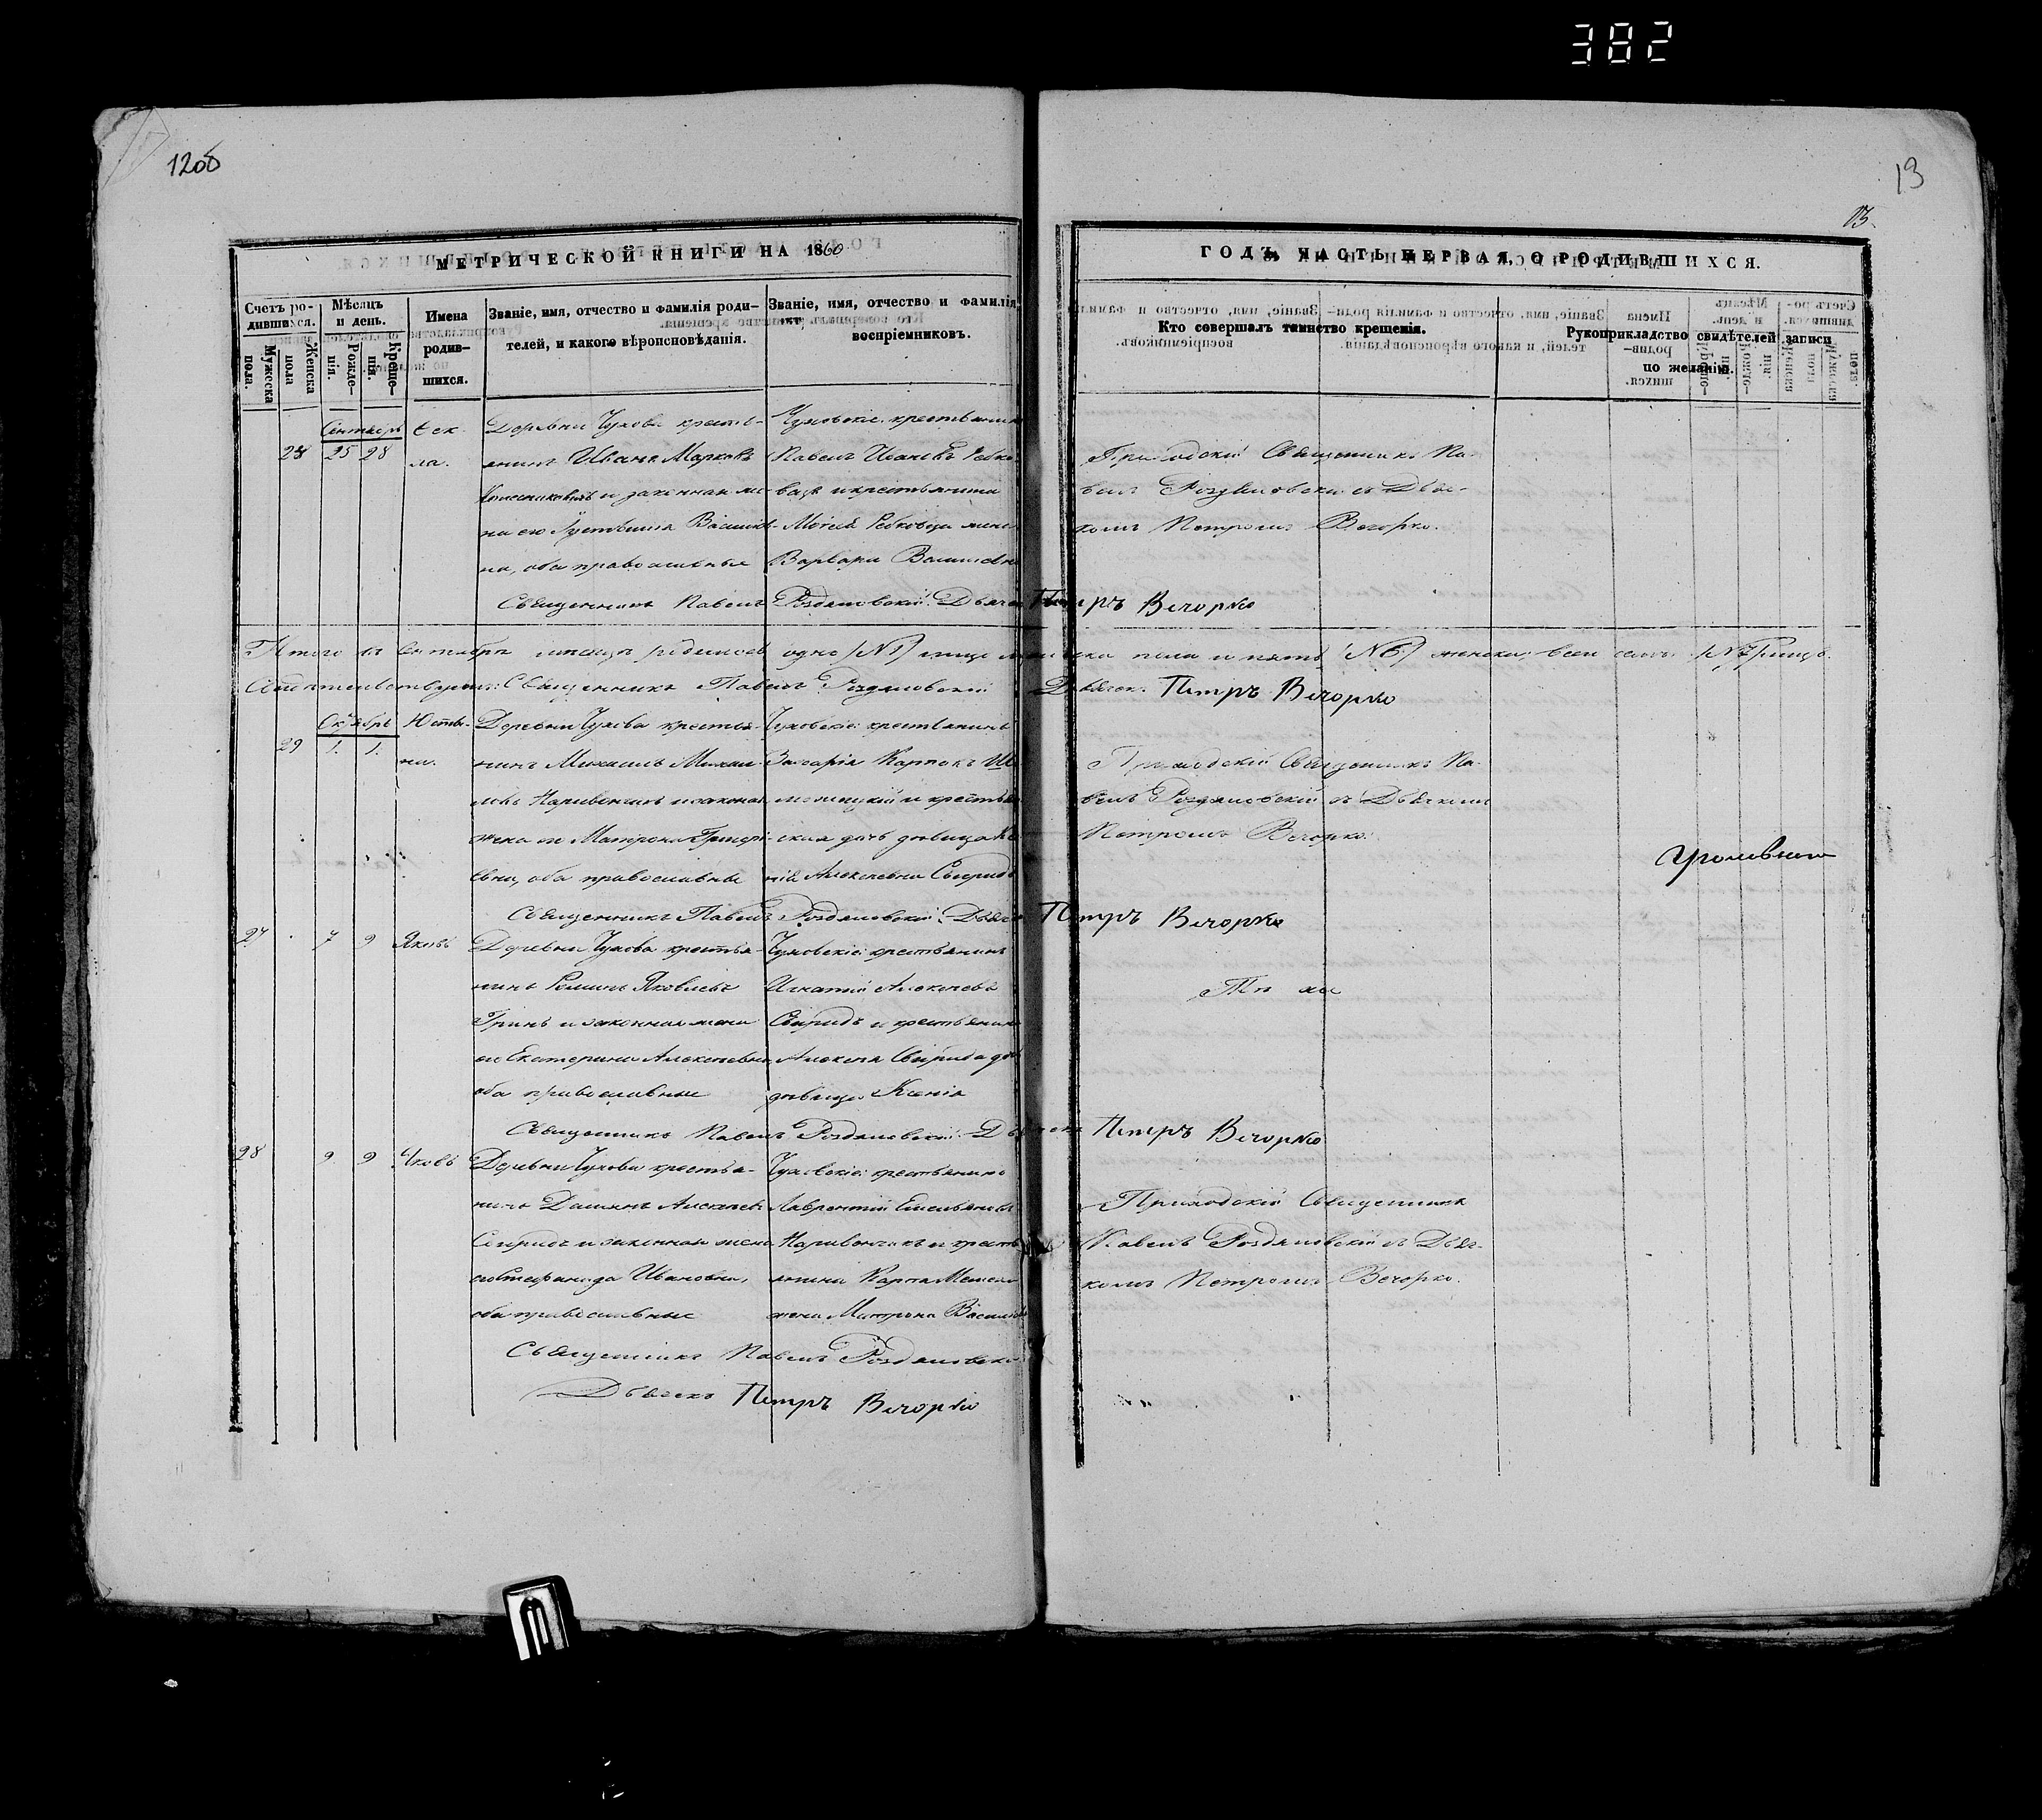 382
12об
13
13.
МЕТРИЧЕСКОЙ КНИГИ НА 1860
ГОДЪ, ЧАСТЬ ПЕРВАЯ, О РОДИВШИХСЯ.
Счетъ ро-
дившихся.
Мужеска
пола.
Женска
пола
Мѣсяцъ
и день.
Рожде-
нія.
Креще-
нія.
Имена
родив-
шихся.
Званіе, имя, отчество и фамилія роди-
телей, и какого вѣроисповѣданія.
Званіе, имя, отчество и фамилія
воспріемниковъ.
Кто совершалъ таинство крещенія.
Рукоприкладство свидѣтелей записи
по желанію.
Сентябрь
28 25 28
Ѳек-
ла.
Деревни Чухова кресть-
янинъ Иванъ Марковъ
и законная же-
на его Василье-
на, оба православные
Чуховскіе: крестьянинъ
Павелъ Ивановъ
и крестьянина
жена
Варвара Васильевна
Приходскій Священникъ Па-
велъ Роздяловскій съ Дьяч-
комъ Петромъ Вечорко.
Священникъ Павелъ Роздяловскій. Дьячекъ Петръ Вечорко
Итого въ Сентябрѣ мѣсяцѣ родилось одно (№1) лице мужеска пола и женска, всего лицъ.
Священникъ Павелъ Роздяловскій Дьячекъ Петръ Вечорко
Октябрь
29 1. 1.
Юсти-
на.
Деревни Чухова крестья-
нинъ Михаилъ Михаи-
ловъ и законная
жена его Матрона Григорь-
евна, оба православные
Чуховскіе: крестьянинъ
Захарія Карповъ
и крестьян-
ская дочь дѣвица
Алексѣевна Свиридъ
Приходскій Священникъ Па-
велъ Роздяловскій съ Дьячкомъ
Петромъ Вечорко.
Священникъ Павелъ Роздяловскій. Дьячекъ Петръ Вечорко
27 7 9 Яковъ
Деревни Чухова крестья-
нинъ Романъ Яковлевъ
Гринь и законная жена
его Екатерина Алексѣевна
оба православные
Чуховскіе: крестьянинъ
Игнатій Алексѣевъ
Свиридъ и крестьянина
Алексѣя Свирида дочь
дѣвица Ксенія
Тѣ же
Священникъ Павелъ Роздяловскій. Дьячекъ Петръ Вечорко
28 9 9 Яковъ
Деревни Чухова крестья-
нинъ Даміанъ Алексѣевъ
Свиридъ и законная жена
его Стефанида Ивановна,
оба православные
Чуховскіе: крестьянинъ
Лаврентій Емельяновъ
и кресть-
янина Карпа
жена Матрона Васильева
Приходскій Священникъ
Павелъ Роздяловскій съ Дьяч-
комъ Петромъ Вечорко.
Священникъ Павелъ Роздяловскій
Дьячекъ Петръ Вечорко